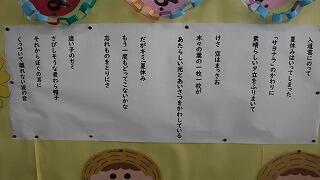 入道雲にのって
夏休みはいってしまった
「サヨナラ」のかわりに
素晴らしい夕立をふりまいて
けさ 空はまっさお
木々の葉の一枚一枚が
あたらしい光とあいさつをかわしている
だがキミ!夏休み
もう一度もどってこないかな
忘れものをとりにさ
迷い子のセミ
さびしそうな麦わら帽子
それから ぼくの耳に
くっついて離れない波の音